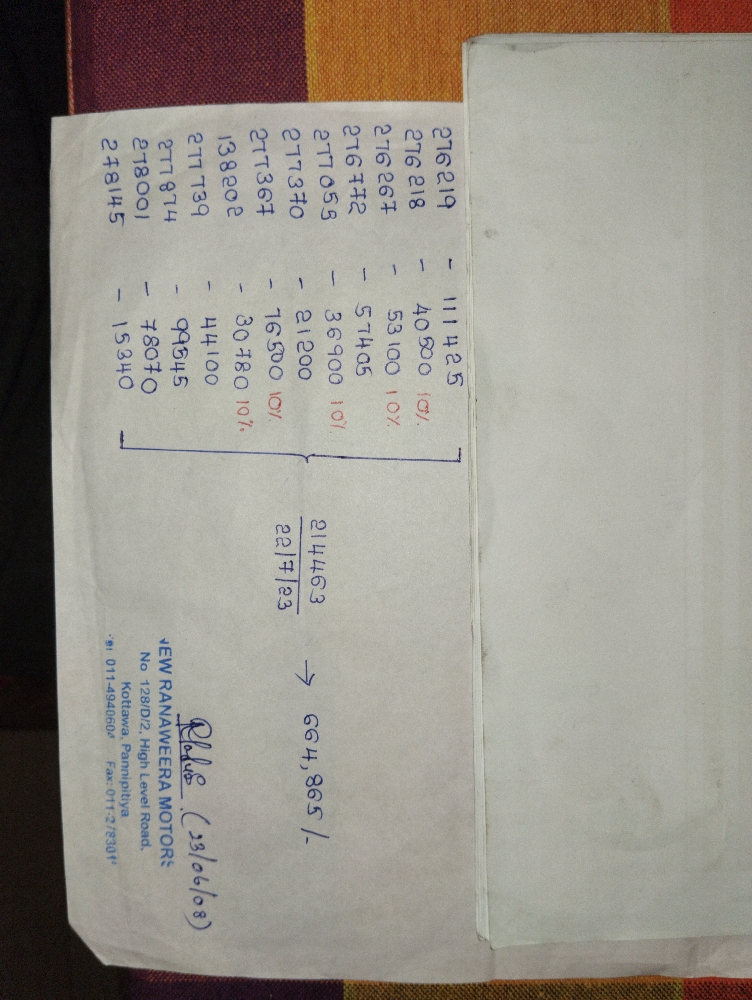 276219 - 111425
276218 - 40500 10%
276267 - 53100 10%
276772 - 57405
277055 - 36900 10%
277370 - 21200
277367 - 76500 10%
138202 - 30780 10%
277739 - 44100
277874 - 99545
278001 - 78070
278145 - 15340
214463 → 664,865/-
22/7/23
(23/06/08)
NEW RANAWEERA MOTORS
No 128/D/2, High Level Road,
Kottawa, Pannipitiya
Tel 011-4940604 Fax: